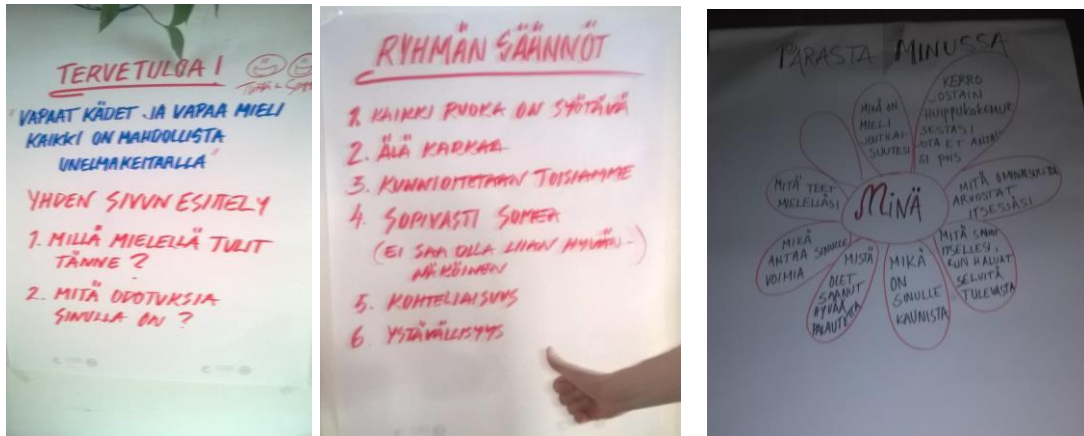 TERVETULOA!
"VAPAAT KÄDET JA VAPAA MIELI
KAIKKI ON MAHDOLLISTA
UNELMAKEITAALLA"
YHDEN SIVUN ESITTELY
1. MILLÄ MIELELLÄ TULIT
TÄNNE?
2. MITÄ ODOTUKSIA
SINULLA ON?
RYHMÄN SÄÄNNÖT
1. KAIKKI RUOKA ON SYÖTÄVÄ
2. ÄLÄ KARKAA
3. KUNNIOITETAAN TOISIAMME
4. SOPIVASTI SOMEA
(EI SAA OLLA LIIAN HYVÄN-)
NÄKÖINEN
5. KOHTELIAISUUS
6. YSTÄVÄLLISYYS
PARASTA MINUSSA
MINÄ
KERRO
JOSTAIN
HUIPPUKOKEMUK
SESTASI
JOTA ET ANTAI
SI POIS
MITÄ OMINAISUUTTA
ARVOSTAT
ITSESSÄSI
MITÄ SANOT
ITSELLESI,
KUN HALUAT
SELVITÄ
TULEVASTA
MIKÄ
ON
SINULLE
KAUNISTA
MISTÄ
OLET
SAANUT
HYVÄÄ
PALAUTETTA
MIKÄ
ANTAA SINULLE
VOIMIA
MITÄ TEET
MIELELLÄSI
MIKÄ ON
MIELI